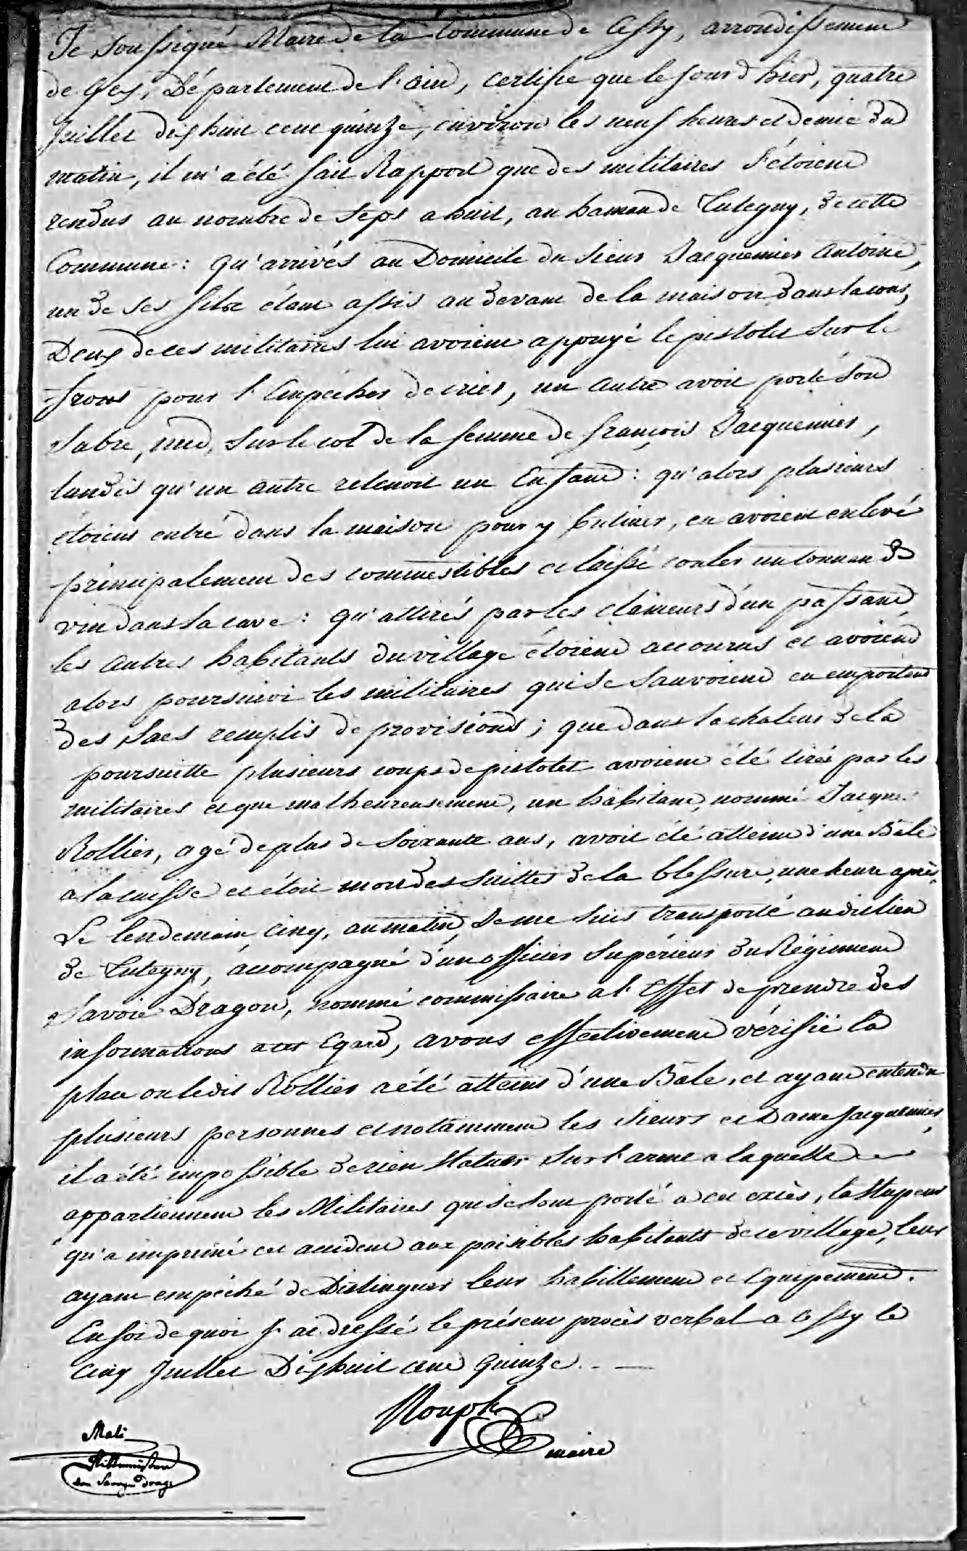 Je soussigné Maire de la Commune de Cessy, arrondissement
de Gex, Département de l'ain, certifie que le jour d'hier, quatre
Juillet dix huit cent quinze, environ les neuf heures et demie du
matin, il m'a été fait Rapport que des militaires s'étoient
rendus au nombre de sept a huit, au hameau de Tutegny, de cette
Commune : qu'arrivés au Domicile du sieur Jacquemier antoine,
un de ses fils étant assis au devant de la maison dans la cour,
Deux de ces militaires lui avoient appuyé le pistolet sur le
front pour l'Empécher de crier, un autre avoit porté son
sabre, nud, sur le col de la femme de françois Jacquemier,
tandis qu'un autre retenoit un Enfant : qu'alors plusieurs
étoient entré dans la maison pour y butiner, en avoient enlevé
principalement des commestibles et laissé couler un tonneau de
vin dans la cave : qu'attirés par les clameurs d'un passant
les autres habitants du village étoient accourus et avoient
alors poursuivi les militaires qui se sauvoient en emportant
des sacs remplis de provisions ; que dans la chaleur de la
poursuitte plusieurs coups de pistolet avoient été tirés par les
militaires et que malheureusement, un habitant, nommé Jacque
Rollier, agé de plus de soixante ans, avoit été atteint d'une Bale
a la cuisse et étoit mort des suittes de la blessure, une heure après.
Le lendemain cinq, au matin, Je me suis transporté au dit lieu
de Tutegny, accompagné d'un officier supérieur du Régiment
Savoie Dragon, nommé commissaire a l'Effet de prendre des
informations a cet Egard, avons effectivement vérifié la
place ou le dit Rollier a été atteint d'une Bale, et ayant entendu
plusieurs personnes et notamment les sieurs et Dame Jacquemier,
il a été impossible de rien statuer sur l'arme a laquelle
appartiennent les Militaires qui se sont porté a cet excès, la stupeur
qu'a imprimé cet accident aux paisibles habitants de ce village, leur
ayant empéché de Distinguer leur habillement et Equipement.
En foi de quoi j'ai dressé le présent procès verbal a Cessy le
cinq Juillet Dix huit cent Quinze.
maire